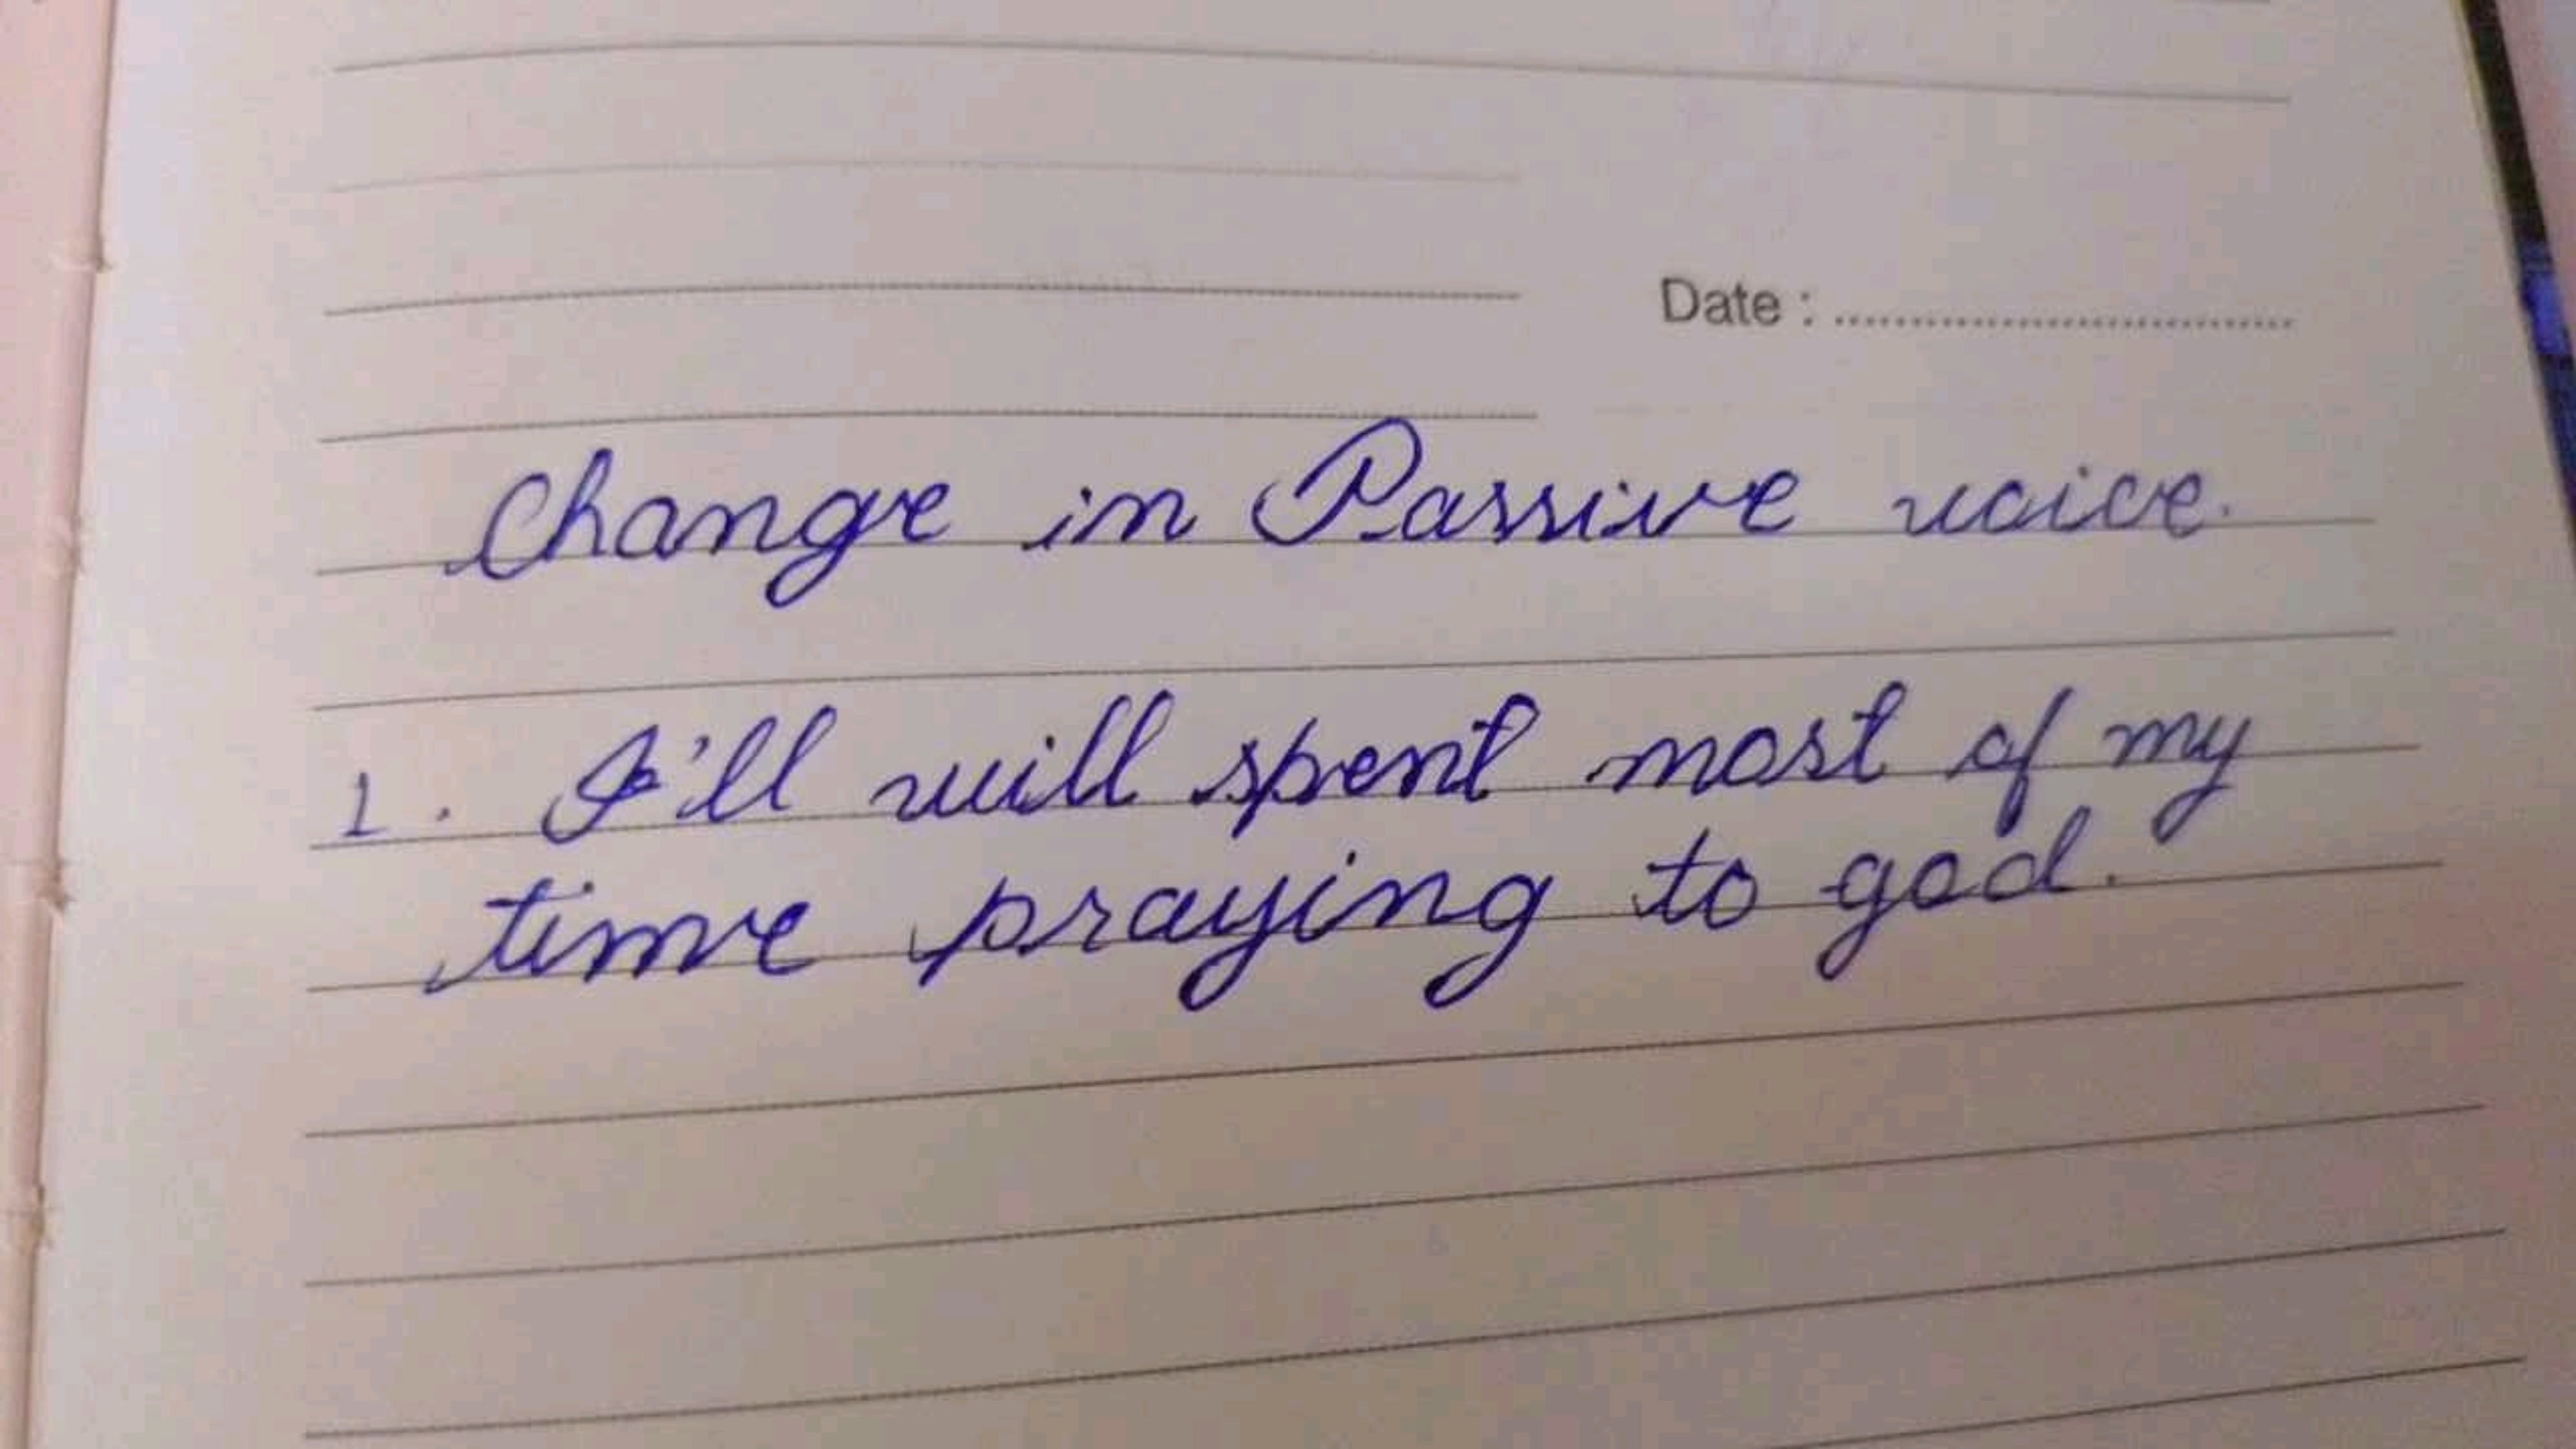 Date : ..............................
Change in Passive voice.
1. I'll will spent most of my
time praying to god.